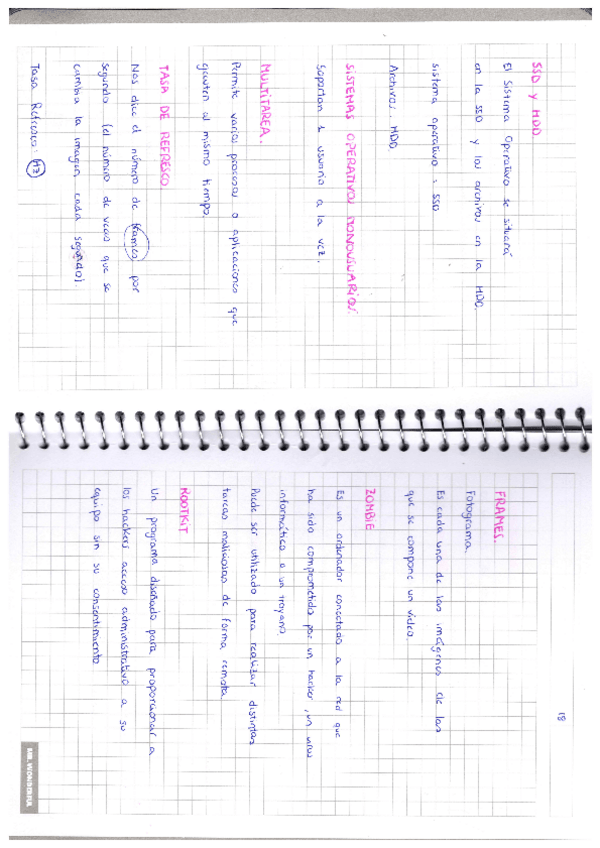 SSD y HDD.
El Sistema Operativo se situará
en la SSD y los archivos en la HDD.
sistema operativo : SSD
Archivos : HDD.
SISTEMAS OPERATIVOS MONOUSUARIOS.
Soportan 1 usuario a la vez.
MULTITAREA.
Permite varios procesos o aplicaciones que
ejecuten al mismo tiempo.
TASA DE REFRESCO.
Nos dice el número de frames por
segundo (el número de veces que se
cambia la imagen cada segundo).
Tasa Refresco: Hz
18
FRAMES.
Fotograma.
Es cada una de las imágenes de las
que se compone un vídeo.
ZOMBIE
Es un ordenador conectado a la red que
ha sido comprometido por un hacker, un virus
informático o un troyano.
Puede ser utilizado para realizar distintas
tareas maliciosas de forma remota.
ROOTKIT
Un programa diseñado para proporcionar a
los hackers acceso administrativo a su
equipo sin su consentimiento
MR. WONDERFUL